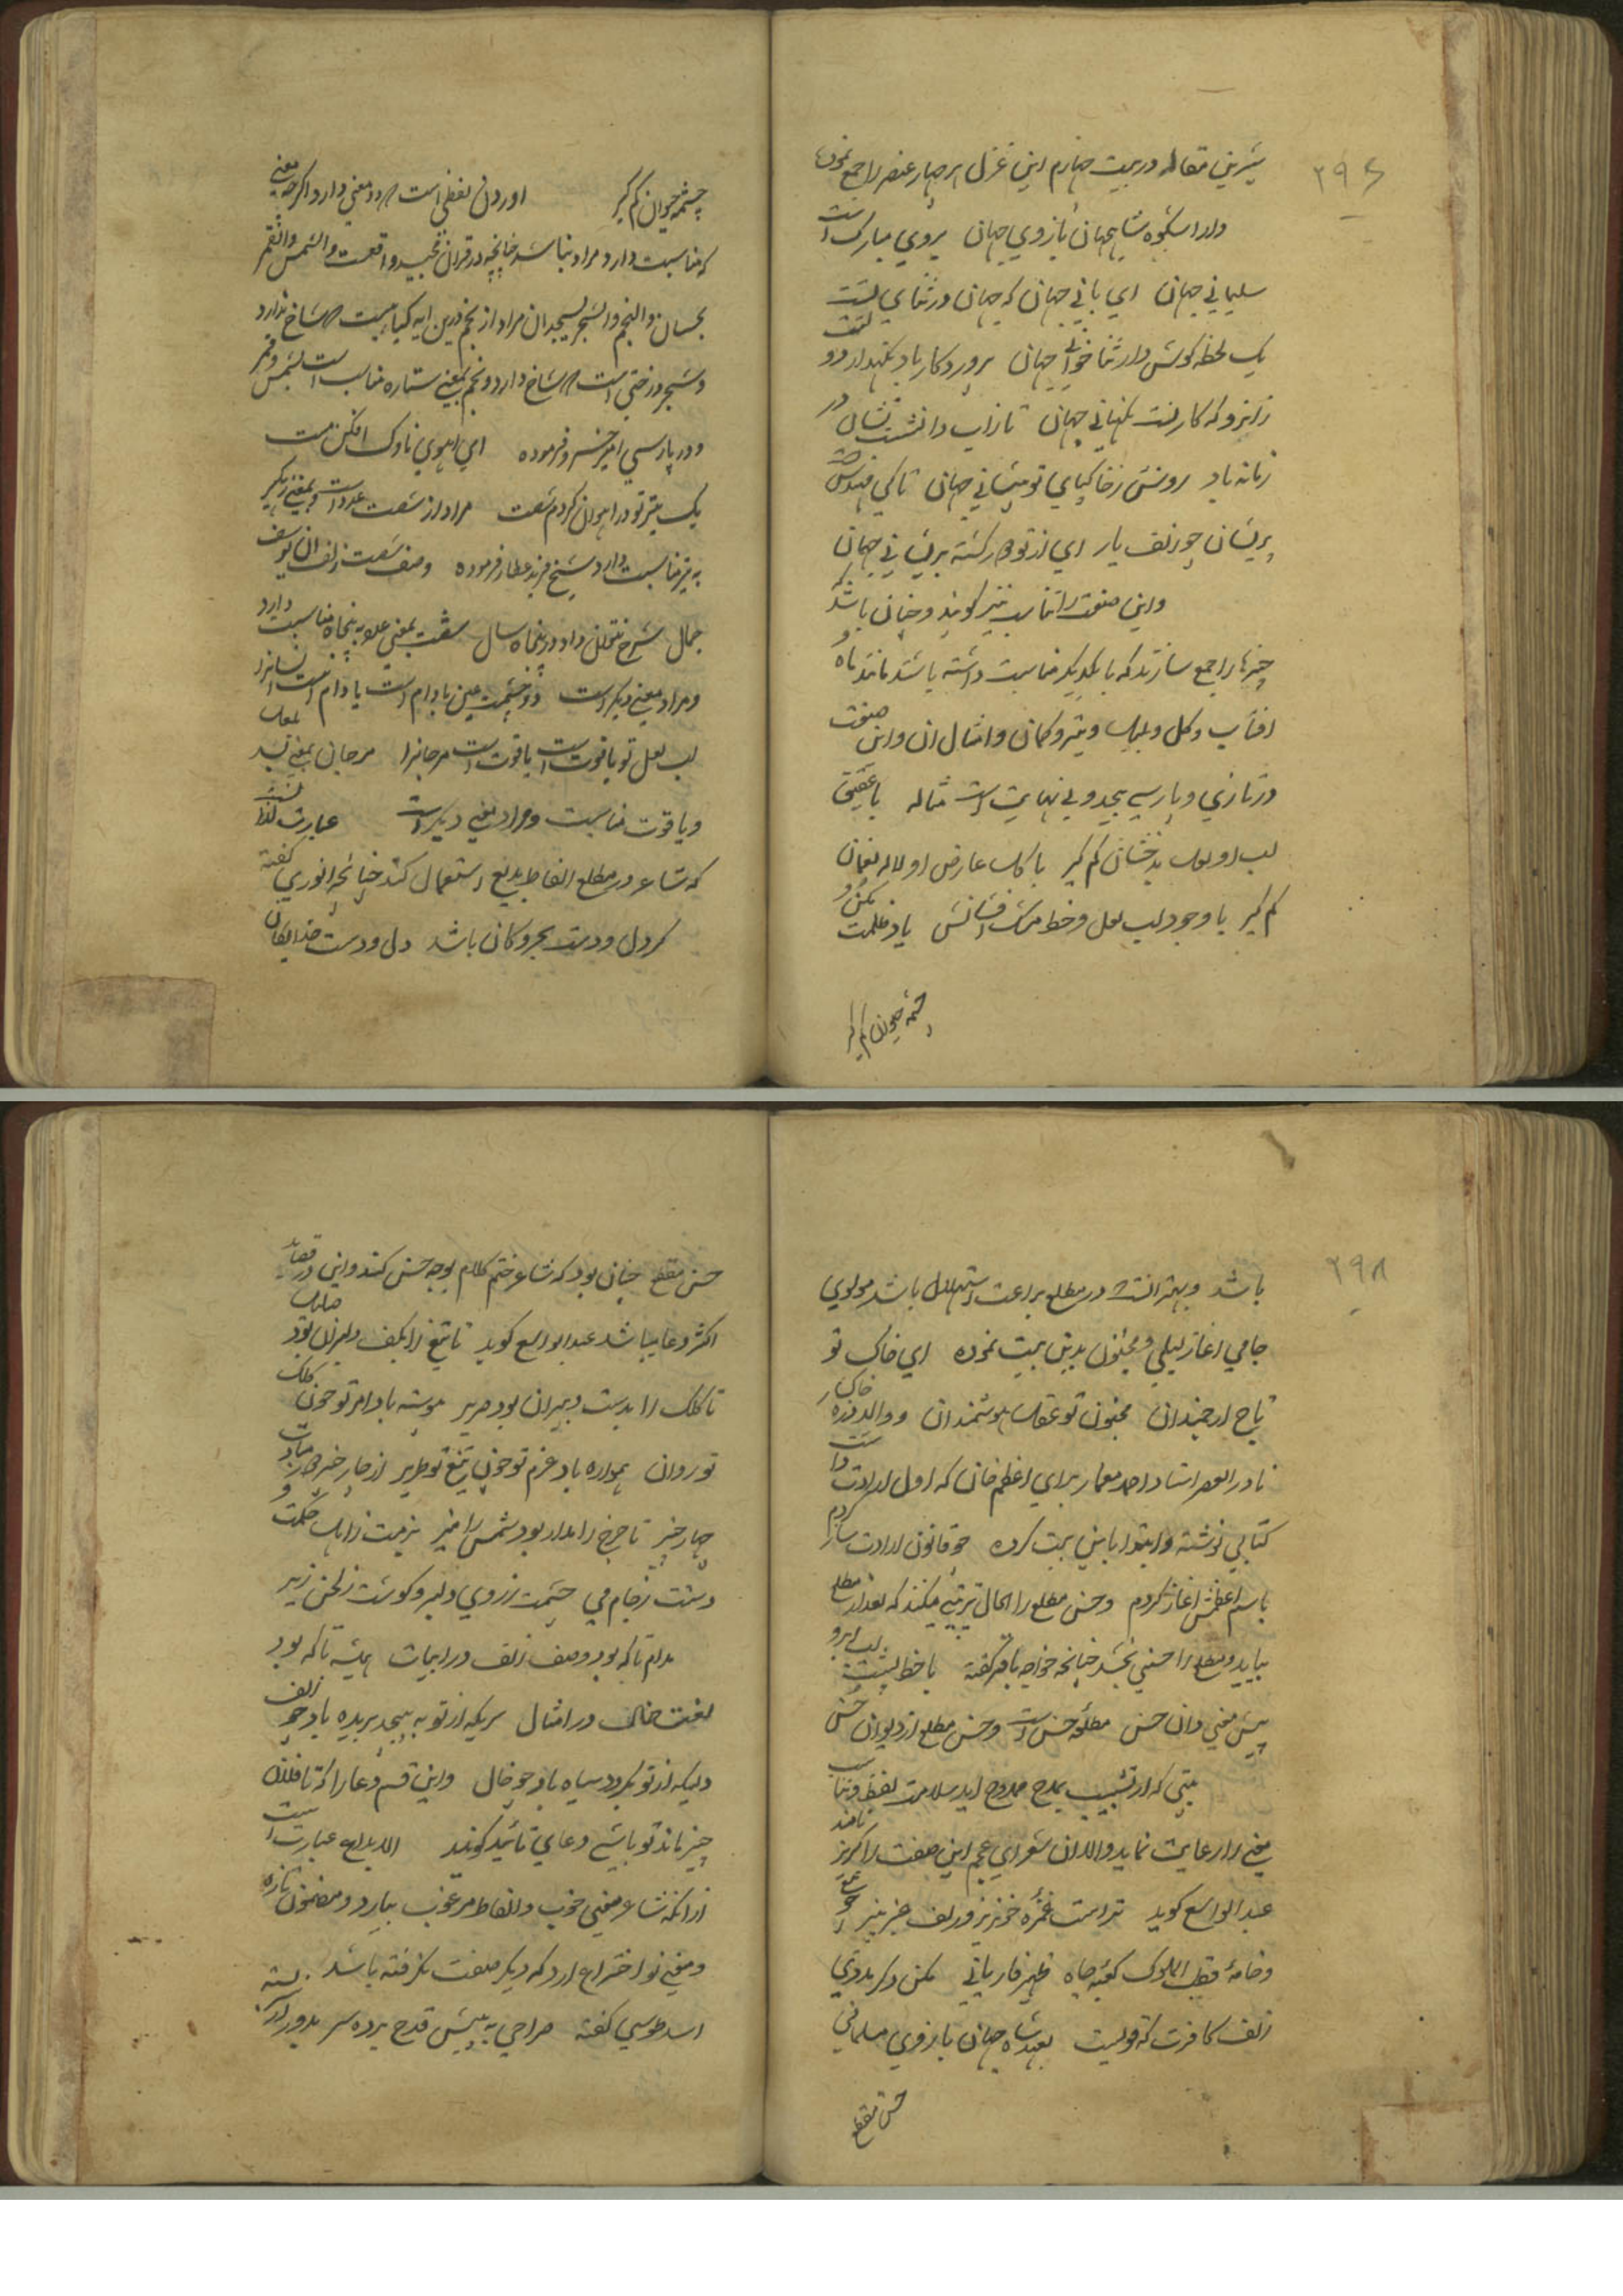 ۲۹۶
شیرین مقاله در بیت چهارم این غزل هر چهار عنصر را جمع نموده
دارد اشکوه شاهجهان بازوی جهان بروی مبارک است
سلیمانی جهان ای بانی جهان که جهان در ثنای تست
یک لحظه گوش دار ثنا خوانی جهان پروردکار باد نکهدار
زانرو که کار تست نکهبانی جهان تا زاب و اتش نشان در
زمانه باد روشن ز خاکپای تو پیشانی جهان تا کی
پریشان چو زلف یار ای از تو در کشته پریشانی جهان
و این صنعت را تناسب نیز کویند و چنان باشد که
چیزها را جمع سازند که با یکدیکر مناسبت داشته باشند مانند ماه و
افتاب و کل و بلبل و تیر و کمان و امثال ان و این صنعت
در تازی و پارسی بیحد و بی نهایت است مثاله با عقیق
لب او لعل بدخشان کم کیر با کل عارض او لاله نعمان
کم کیر با وجود لب لعل و خط مشک افشانش یاد ظلمت مکن و
چشمه حیوان کم کیر
چشمه حیوان کم کیر اوردن لفظی است که دو معنی دارد اکرچه معنی
که مناسبت دارد مراد نباشد چنانچه در قران مجید واقعست والشمس والقمر
بحسبان والنجم والشجر یسجدان مراد از نجم درین ایه کیاهیست که شاخ ندارد
و شجر درختی است که شاخ دارد و نجم بمعنی ستاره مناسب است بشمس و قمر
و در پارسی امیر خسرو فرموده ای اهوی ناوک افکن مست
یک تیر تو در اهوان کردم شصت مراد از شصت عدد است و بمعنی زهکیر
به تیر مناسبت دارد شیخ فرید عطار فرموده وصف شصت زلف ان یوسف
جمال شرح نتوان داد در پنجاه سال شصت بمعنی عدد به پنجاه مناسبت دارد
و مراد معنی دیکر است دو چشمت عین بادام است یا دام است انسانرا
لب لعل تو یاقوت است یا قوت است مرجانرا مرجان بمعنی بسد بلعل
و یاقوت مناسبت و مراد معنی دیکر است عبارت از انست
که شاعر در مطلع الفاظ بدیع استعمال کند چنانچه انوری کفته
کر دل و دست بحر و کان باشد دل و دست خدایکان
۲۹۸
باشد و بهتر انست که در مطلع براعت استهلال باشد مولوی
جامی اغاز لیلی و مجنون بدین بیت نموده ای خاک تو
تاج ارجمندان مجنون تو عقل هوشمندان و والد
نادر العصر استاد احمد معمار برای اعظم خان که اول ارادت
کتابی نوشته و ابتدا باین بیت کرده چو قانون ارادت ساز کردم
باسم اعظمش اغاز کردم و حسن مطلع را الحال میکنند که بعد از مطلع
بیاید و مطلع را حسنی بخشد چنانچه خواجه باقر کفته با خط پشت لب ابرو
پیش معنی دان حسن مطلع حسن است و حسن مطلع از دیوان حسن
بیتی که از تشبیب بمدح ممدوح اید سلامت لفظ و تناسب
معنی را رعایت نماید و الدان شعرای عجم این صنعت را کریز نامند
عبد الواسع کوید تراست غمزه خونریز و زلف عنبر بیز
و خامه قطب الملوک کعبه جاه ظهیر فاریابی مکن دکر بدوی
زلف کافرت که قویست بعهد شاه جهان بازوی مسلمانی
حسن مقطع
حسن مقطع چنان بود که شاعر ختم کلام بوجه حسن کند و این در قصاید
اکثر دعا میباشد عبد الواسع کوید تا تیغ را بکف دلیران بود صلیل
تا کلک را بدست دبیران بود صریر پیوسته باد امر تو چون کلک
تو روان همواره باد عزم تو چون تیغ تو طریر از چار چیز
چار چیز تا چرخ را مدار بود شمس را منیر بزمت ز اهل حکمت و
دستت ز جام می چشمت ز روی دلبر و کوشت ز لحن زیر
مدام تا که بود وصف زلف در ابیات همیشه تا که بود
لغت خال در امثال سریکه از تو به پیچد بریده باد چو زلف
دلیکه از تو بکردد سیاه باد چو خال و این قسم دعا را که تا فلان
چیز ماند تو باشی دعای تائید کویند الابداع عبارت است
از انکه شاعر معنی خوب و الفاظ مرغوب بیارد و مضمون تازه
و معنی نو اختراع ارد که دیکر صفت نکرفته باشد
اسد طوسی کفته صراحی به پیش قدح برده سر